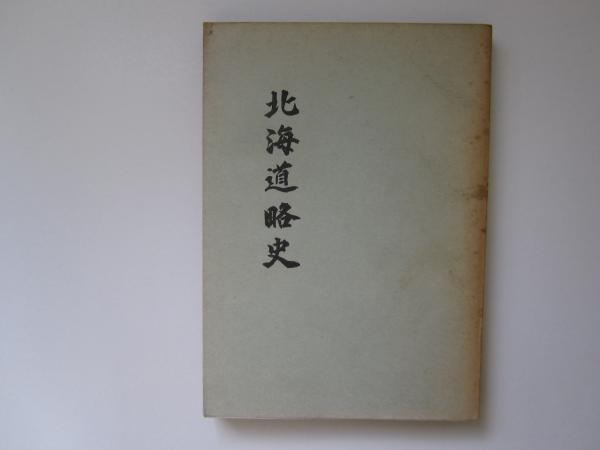 北海道略史